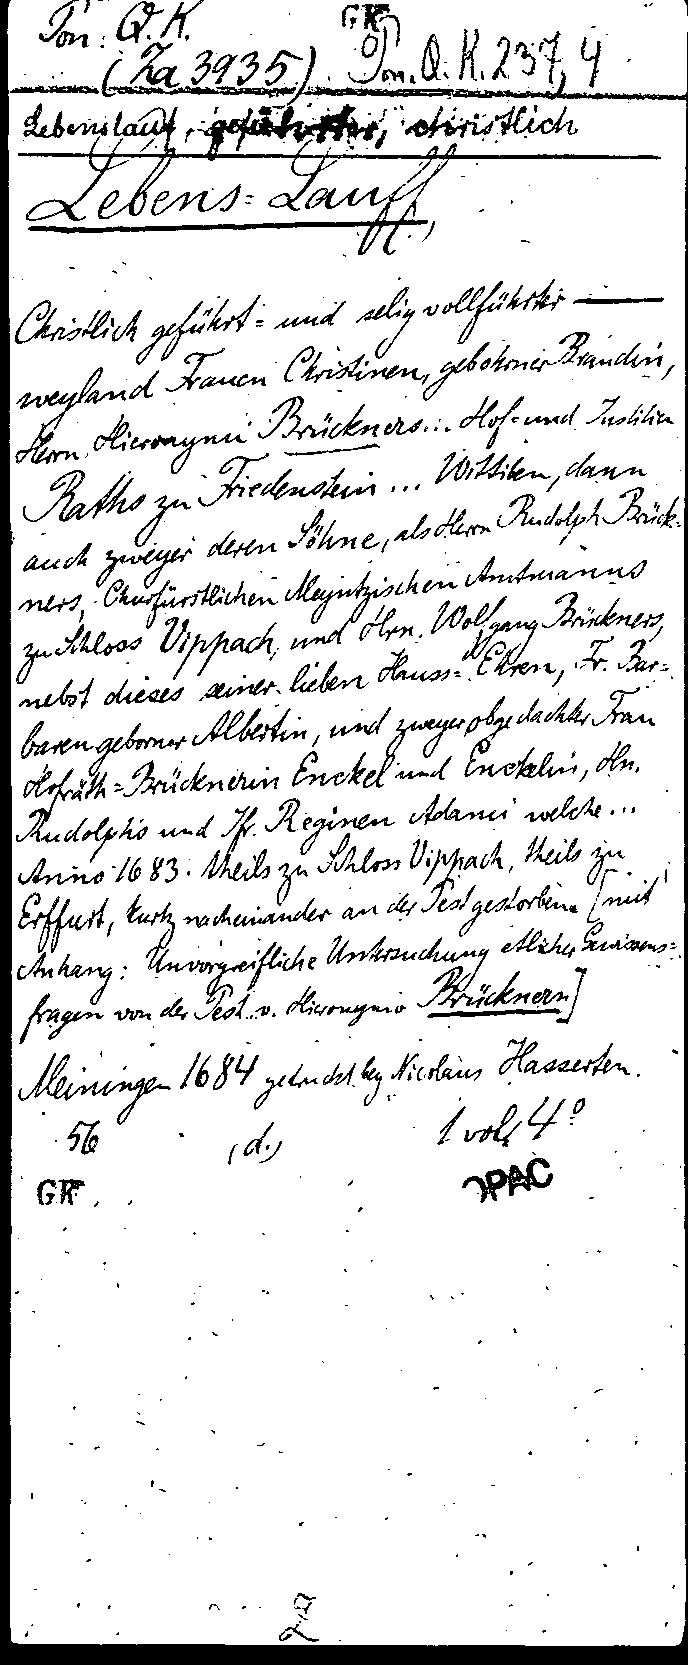 Pon. Q. K.
GK
(Za 3935). Pon. Q. K. 237, 4
Lebenslauf, geführter, christlich
Lebens=Lauff,
Christlich geführt= und selig vollführter —
weyland Frauen Christinen, gebohrner Brandin,
Herrn Hieronymi Brückners... Hof= und Justitien
Raths zu Friedenstein ... Wittiben, dann
auch zweyer deren Söhne, als Herrn Rudolph Brück=
ners, Churfürstlichen Mayntzischen Amtmanns
zu Schloss Vippach, und Hrn. Wolfgang Brückners,
nebst dieses seiner lieben Hauss=Ehren, Fr. Bar=
baren geborner Albertin, und zweyer obgedachter Frau
Hofräth=Brücknerin Enckel und Enckelin, Hn.
Rudolphs und Jfr. Reginen Adami welche...
Anno 1683. theils zu Schloss Vippach, theils zu
Erffurt, kurtz nacheinander an der Pest gestorben. [mit
Anhang: Unvorgreifliche Untersuchung etlicher Gewissens=
fragen von der Pest v. Hieronymo Brücknern]
Meiningen 1684 gedruckt bey Nicolaus Hasserten.
56 (d.) 1 vol. 4°
GK OPAC